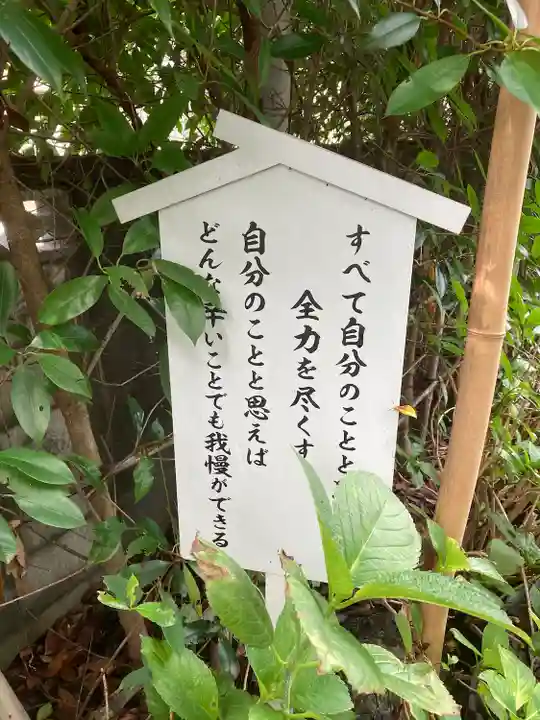 すべて自分のことと
全力を尽くす
自分のことと思えば
どんな辛いことでも我慢ができる